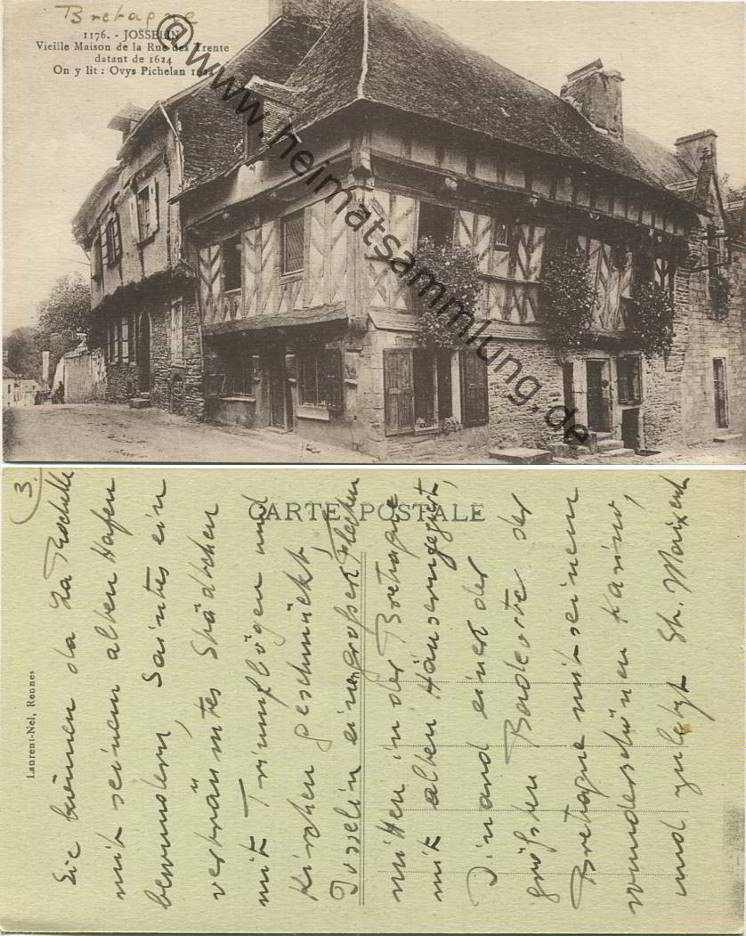 Bretagne
1176. - JOSSELIN
Vieille Maison de la Rue des Trente
datant de 1624
On y lit : Ovys Pichelan 1624
©www.heimatsammlung.de
CARTE POSTALE
Laurent-Nel, Rennes
3.
Sie können da La Rochelle
mit seinem alten Hafen
bewundern, Saintes ein
verträumtes Städtchen
mit Triumfbögen und
Kirchen geschmückt,
Josselin ein großer Flecken
mitten in der Bretagne
mit alten Häusern geziert,
Dinard einer der
größten Badeorte der
Bretagne mit seinem
wunderschönen Kasino,
und zuletzt St.